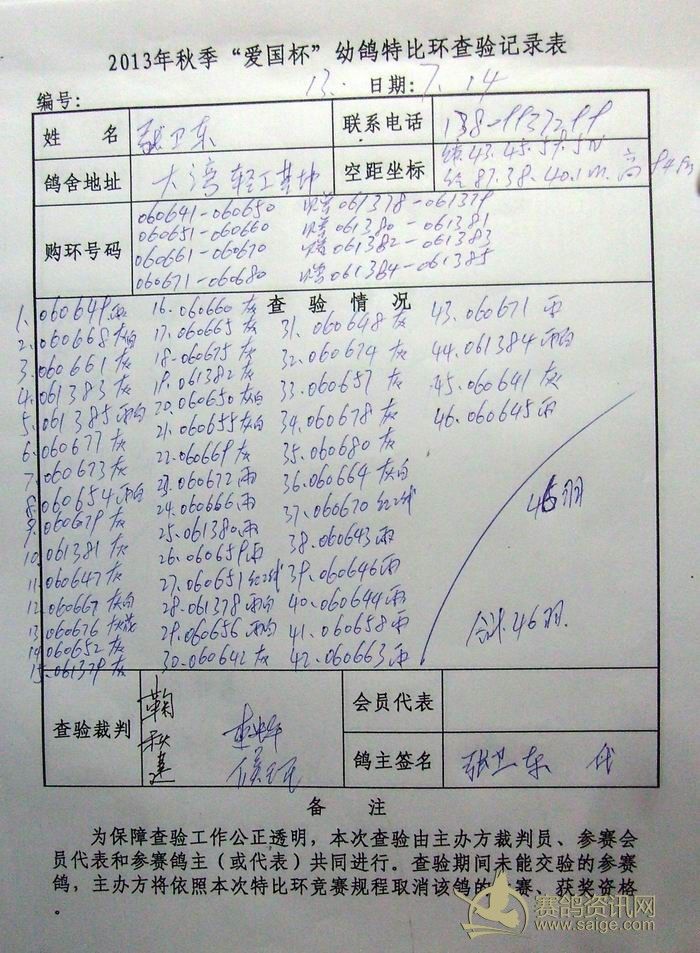 2013年秋季“爱国杯”幼鸽特比环查验记录表
编号: 13. 日期: 7. 14
姓 名 张卫东 联系电话
鸽舍地址 大湾轻工基地 空距坐标 43.45.59.5N
87.38.40.1
购环号码
060641-060650 061378-061379
060651-060660 061380-061381
060661-060670 061382-061383
060671-060680 061384-061385
查 验 情 况
1. 060649 雨
2. 060668 灰白
3. 060661 灰
4. 061383 灰
5. 061385 雨白
6. 060677 灰
7. 060673 灰
8. 060654 雨白
9. 060679 灰
10. 061381 灰
11. 060647 灰
12. 060667 灰白
13. 060676 灰
14. 060652 灰
15. 061379 灰
16. 060660 灰
17. 060665 灰
18. 060675 灰
19. 061382 灰
20. 060650 灰白
21. 060655 灰白
22. 060669 灰
23. 060672 雨
24. 060666 雨
25. 061380 雨
26. 060659 雨
27. 060651 红
28. 061378 雨白
29. 060656 雨白
30. 060642 灰
31. 060648 灰
32. 060674 灰
33. 060657 灰
34. 060678 灰
35. 060680 灰
36. 060664 灰白
37. 060670 红
38. 060643 雨
39. 060646 雨
40. 060644 雨
41. 060658 雨
42. 060663 雨
43. 060671 雨
44. 061384 雨白
45. 060641 灰
46. 060645 雨
46羽
合计46羽.
查验裁判 鞠秋建 会员代表
鸽主签名 张卫东 代
备 注
为保障查验工作公正透明，本次查验由主办方裁判员、参赛会
员代表和参赛鸽主（或代表）共同进行。查验期间未能交验的参赛
鸽，主办方将依照本次特比环竞赛规程取消该鸽的参赛、获奖资格
。
赛鸽资讯网
www.saige.com